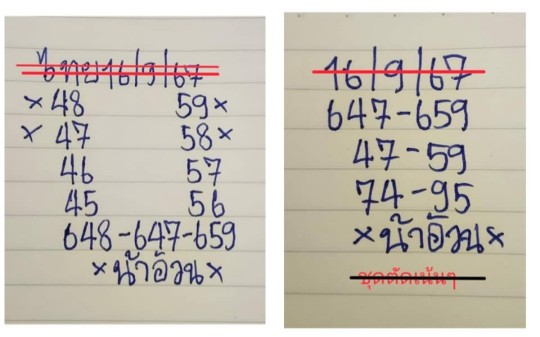 ไทย16/9/67
×48 59×
×47 58×
46 57
45 56
648-647-659
×น้ำอ้วน×
16/9/67
647-659
47-59
74-95
×น้ำอ้วน×
ชุดตัดเน้นๆ